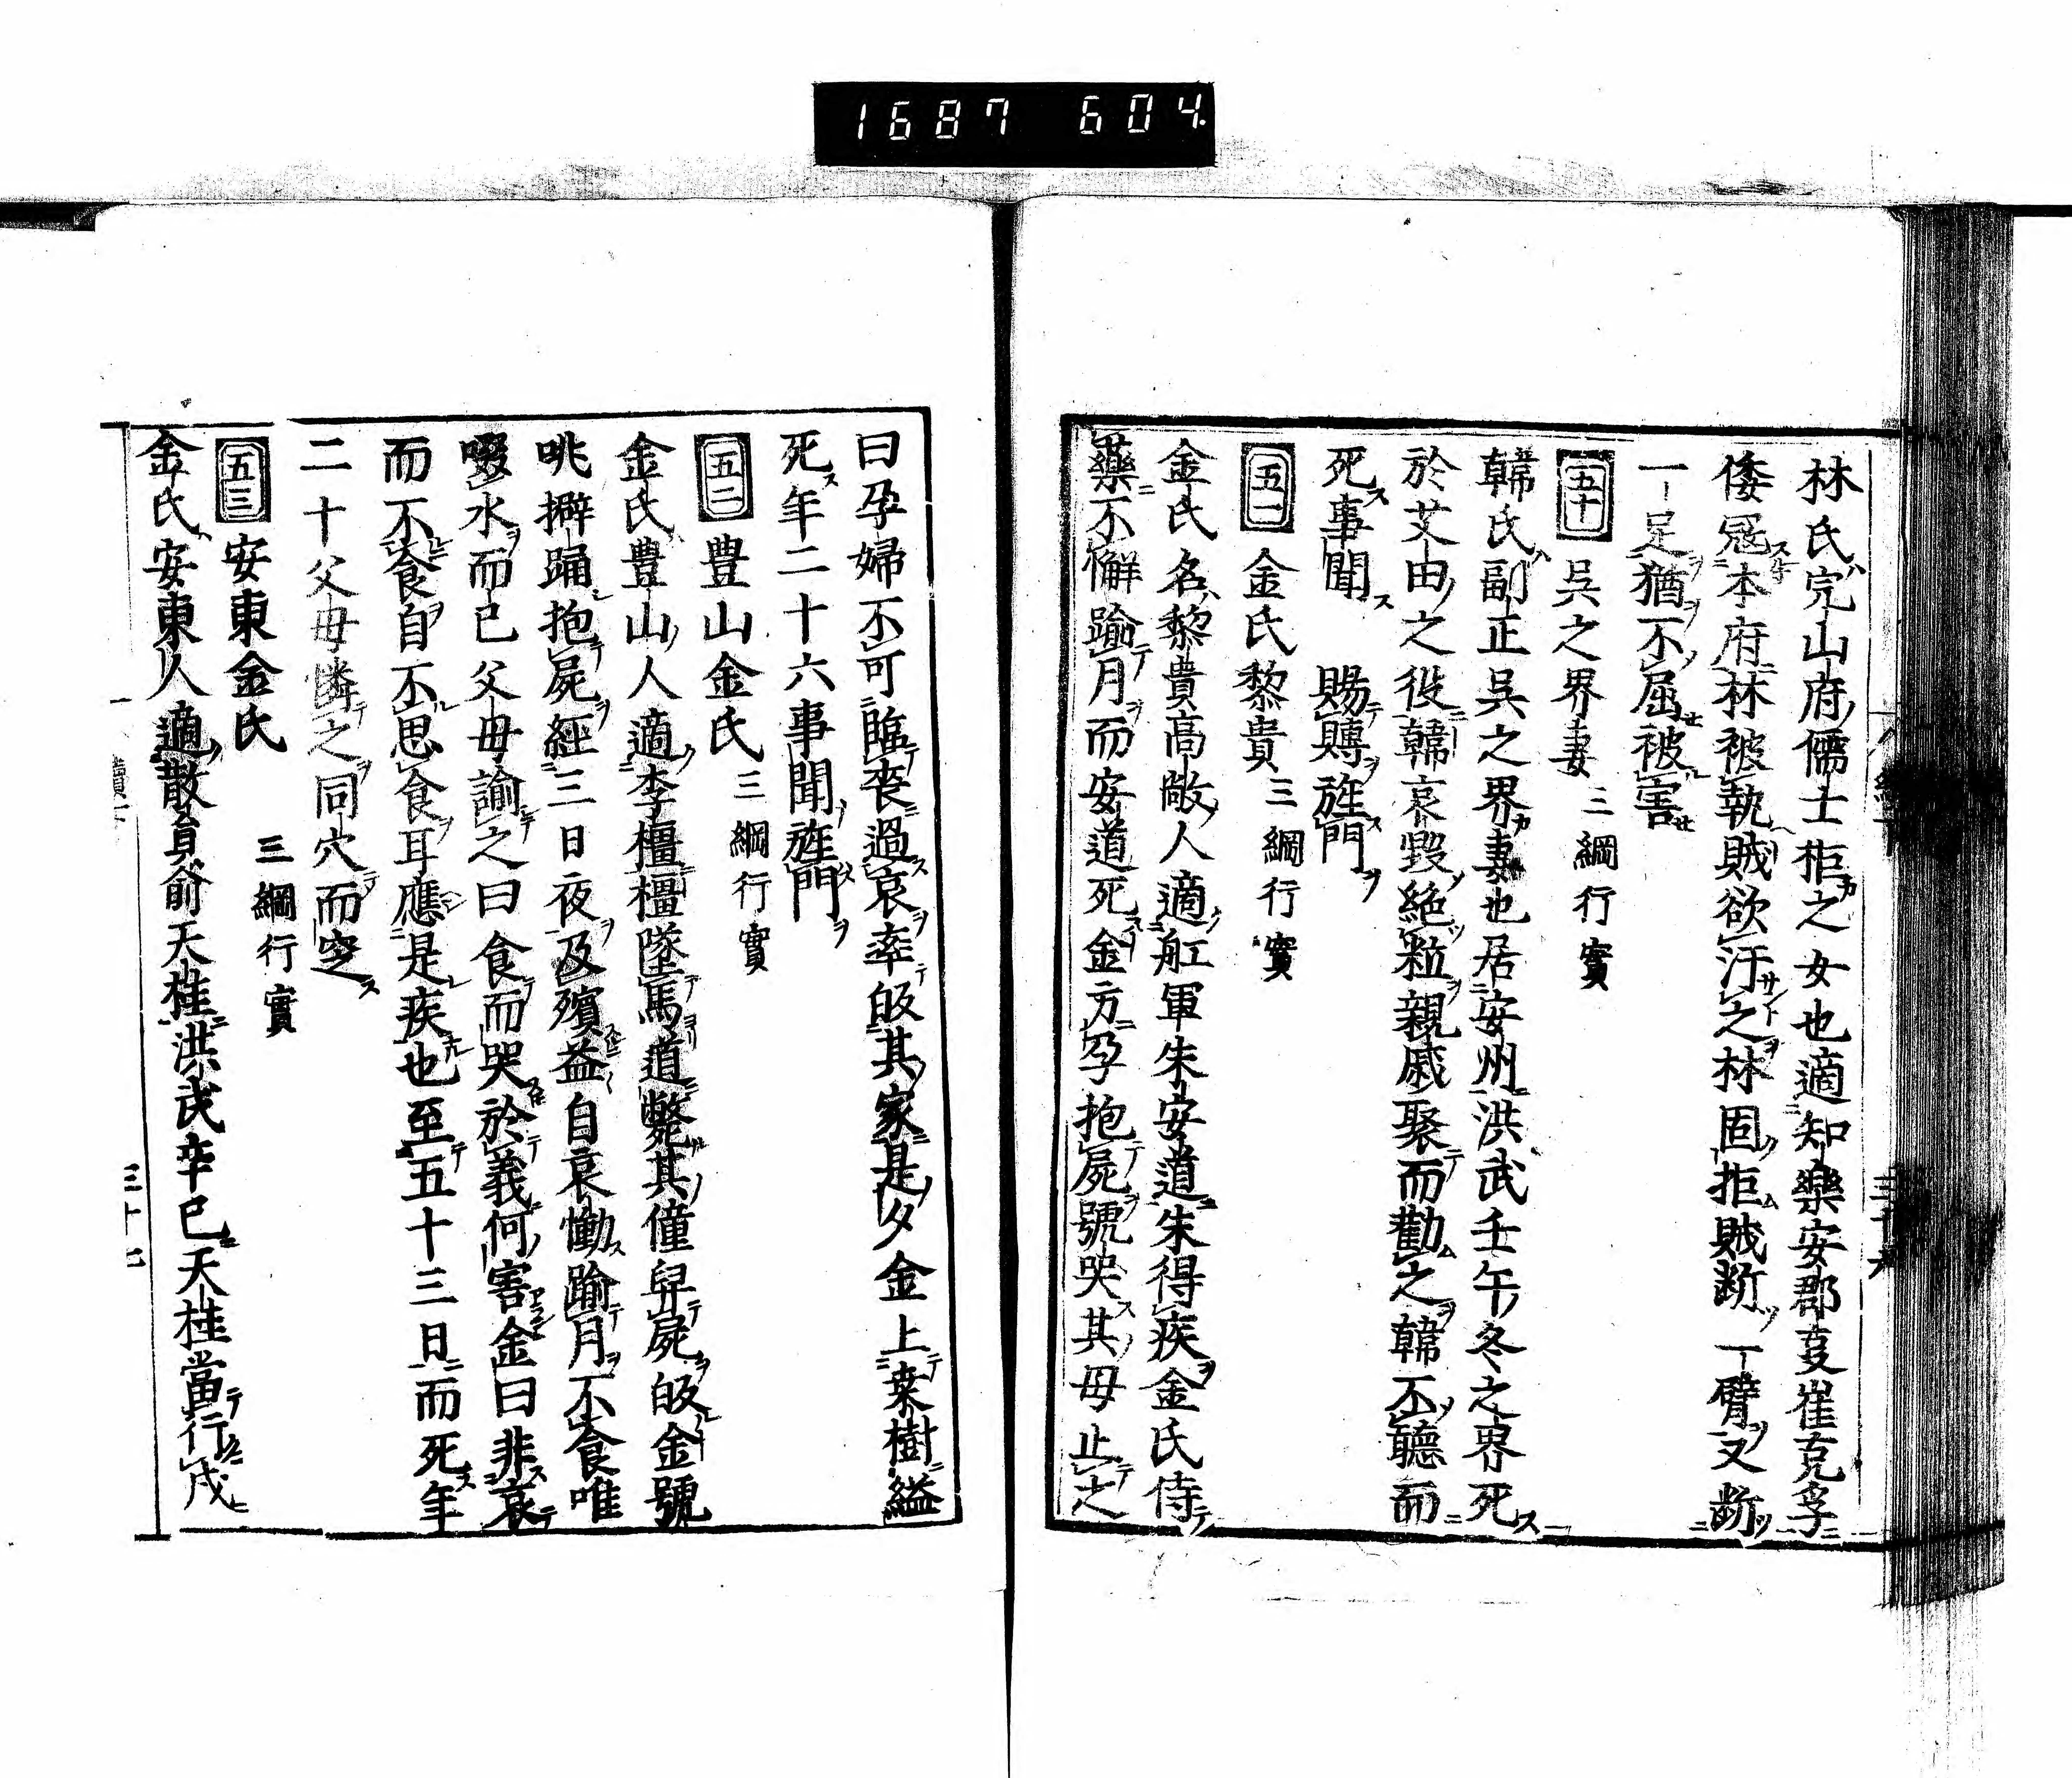 1687 604
林氏完山府儒士柜之女也適知樂安郡叓崔克孚
倭冦本府林被執賊欲汙之林固拒賊斷一臂又斷
一足猶不屈被害
五十 吳之界妻 三綱行實
韓氏副正吳之界妻也居安州洪武壬午冬之界死
於艾由之役韓哀毀絶粒親戚聚而勸之韓不聽而
死事聞 賜賻旌門
五一 金氏黎貴 三綱行實
金氏名黎貴高敞人適舡軍朱安道朱得疾金氏侍
藥不懈踰月而安道死金方孕抱屍號哭其母止之
曰孕婦不可臨喪過哀率皈其家是夕金上桒樹縊
死年二十六事聞旌門
五二 豊山金氏 三綱行實
金氏豊山人適李橿橿墜馬道斃其僮舁屍皈金號
咷擗踊抱屍經三日夜及殯益自哀慟踰月不食唯
啜水而已父母諭之曰食而哭於義何害金曰非哀
而不食自不思食耳應是疾也至五十三日而死年
二十父母憐之同穴而窆
五三 安東金氏 三綱行實
金氏安東人適散員俞天桂洪武辛巳天桂當行戍
三十七